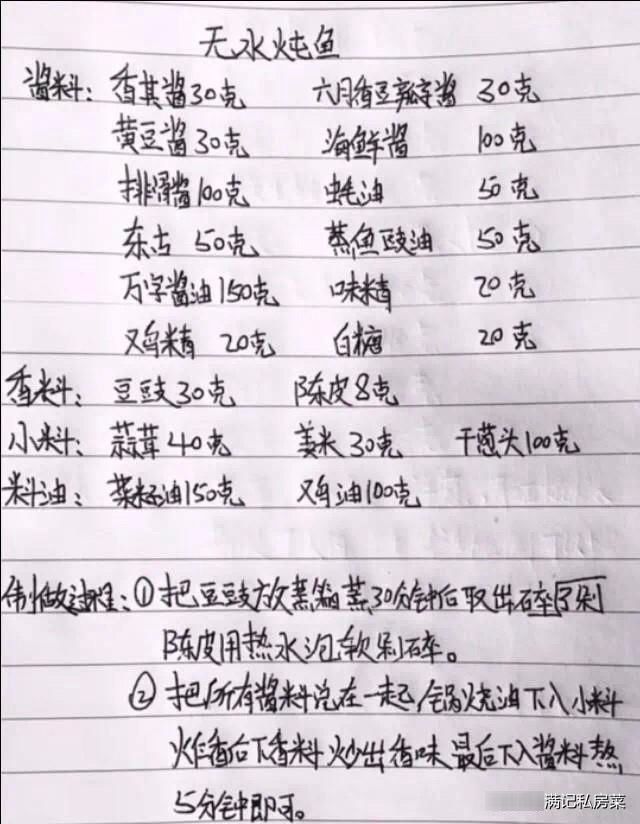 无水炖鱼
酱料：香其酱30克 六月香豆瓣酱 30克
黄豆酱30克 海鲜酱 100克
排骨酱100克 蚝油 50克
东古 50克 蒸鱼豉油 50克
万字酱油150克 味精 20克
鸡精 20克 白糖 20克
香料：豆豉30克 陈皮8克
小料：蒜茸40克 姜米30克 干葱头100克
料油：菜籽油150克 鸡油100克
制做过程：①把豆豉放蒸箱蒸30分钟后取出剁
陈皮用热水泡软剁碎。
②把所有酱料兑在一起,锅烧油下入小料
炸香后下香料炒出香味最后下入酱料熬
5分钟即可。
满记私房菜